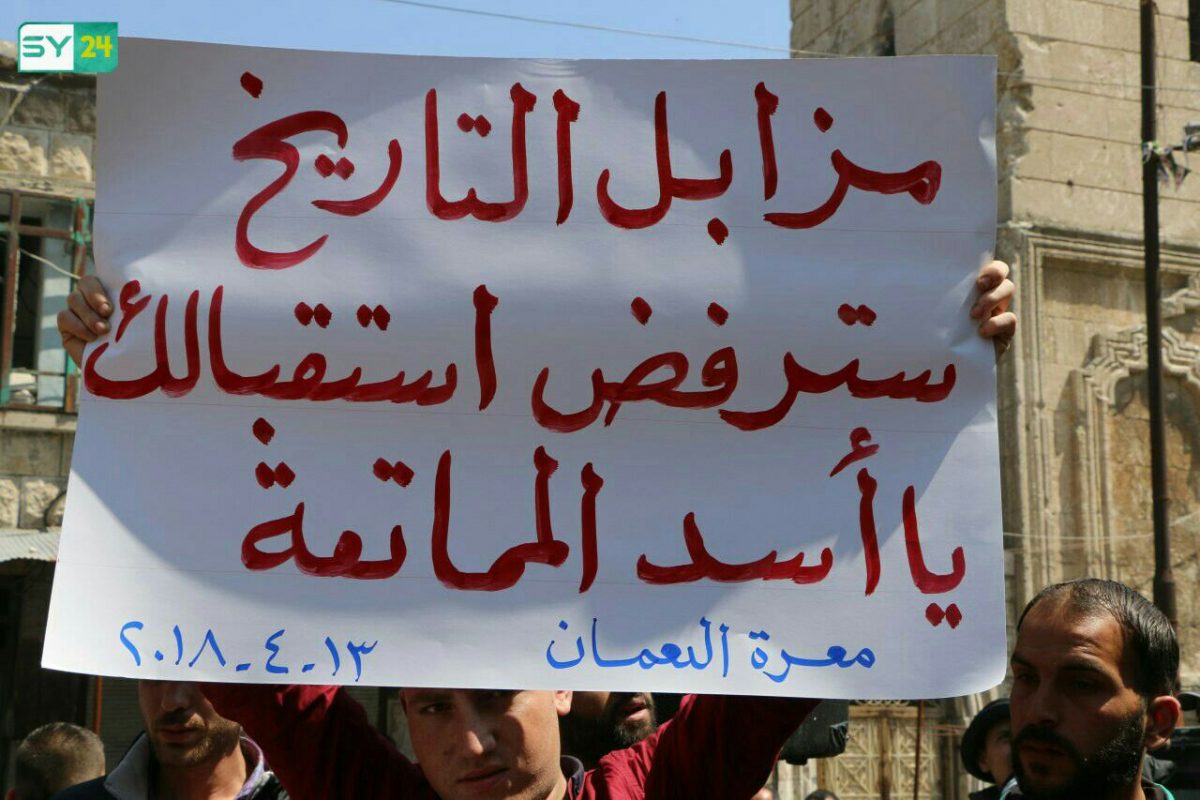 SY 24
مزابل التاريخ
سترفض استقبالك
يا أسد الماتعة
معرة النعمان ١٣-٤-٢٠١٨